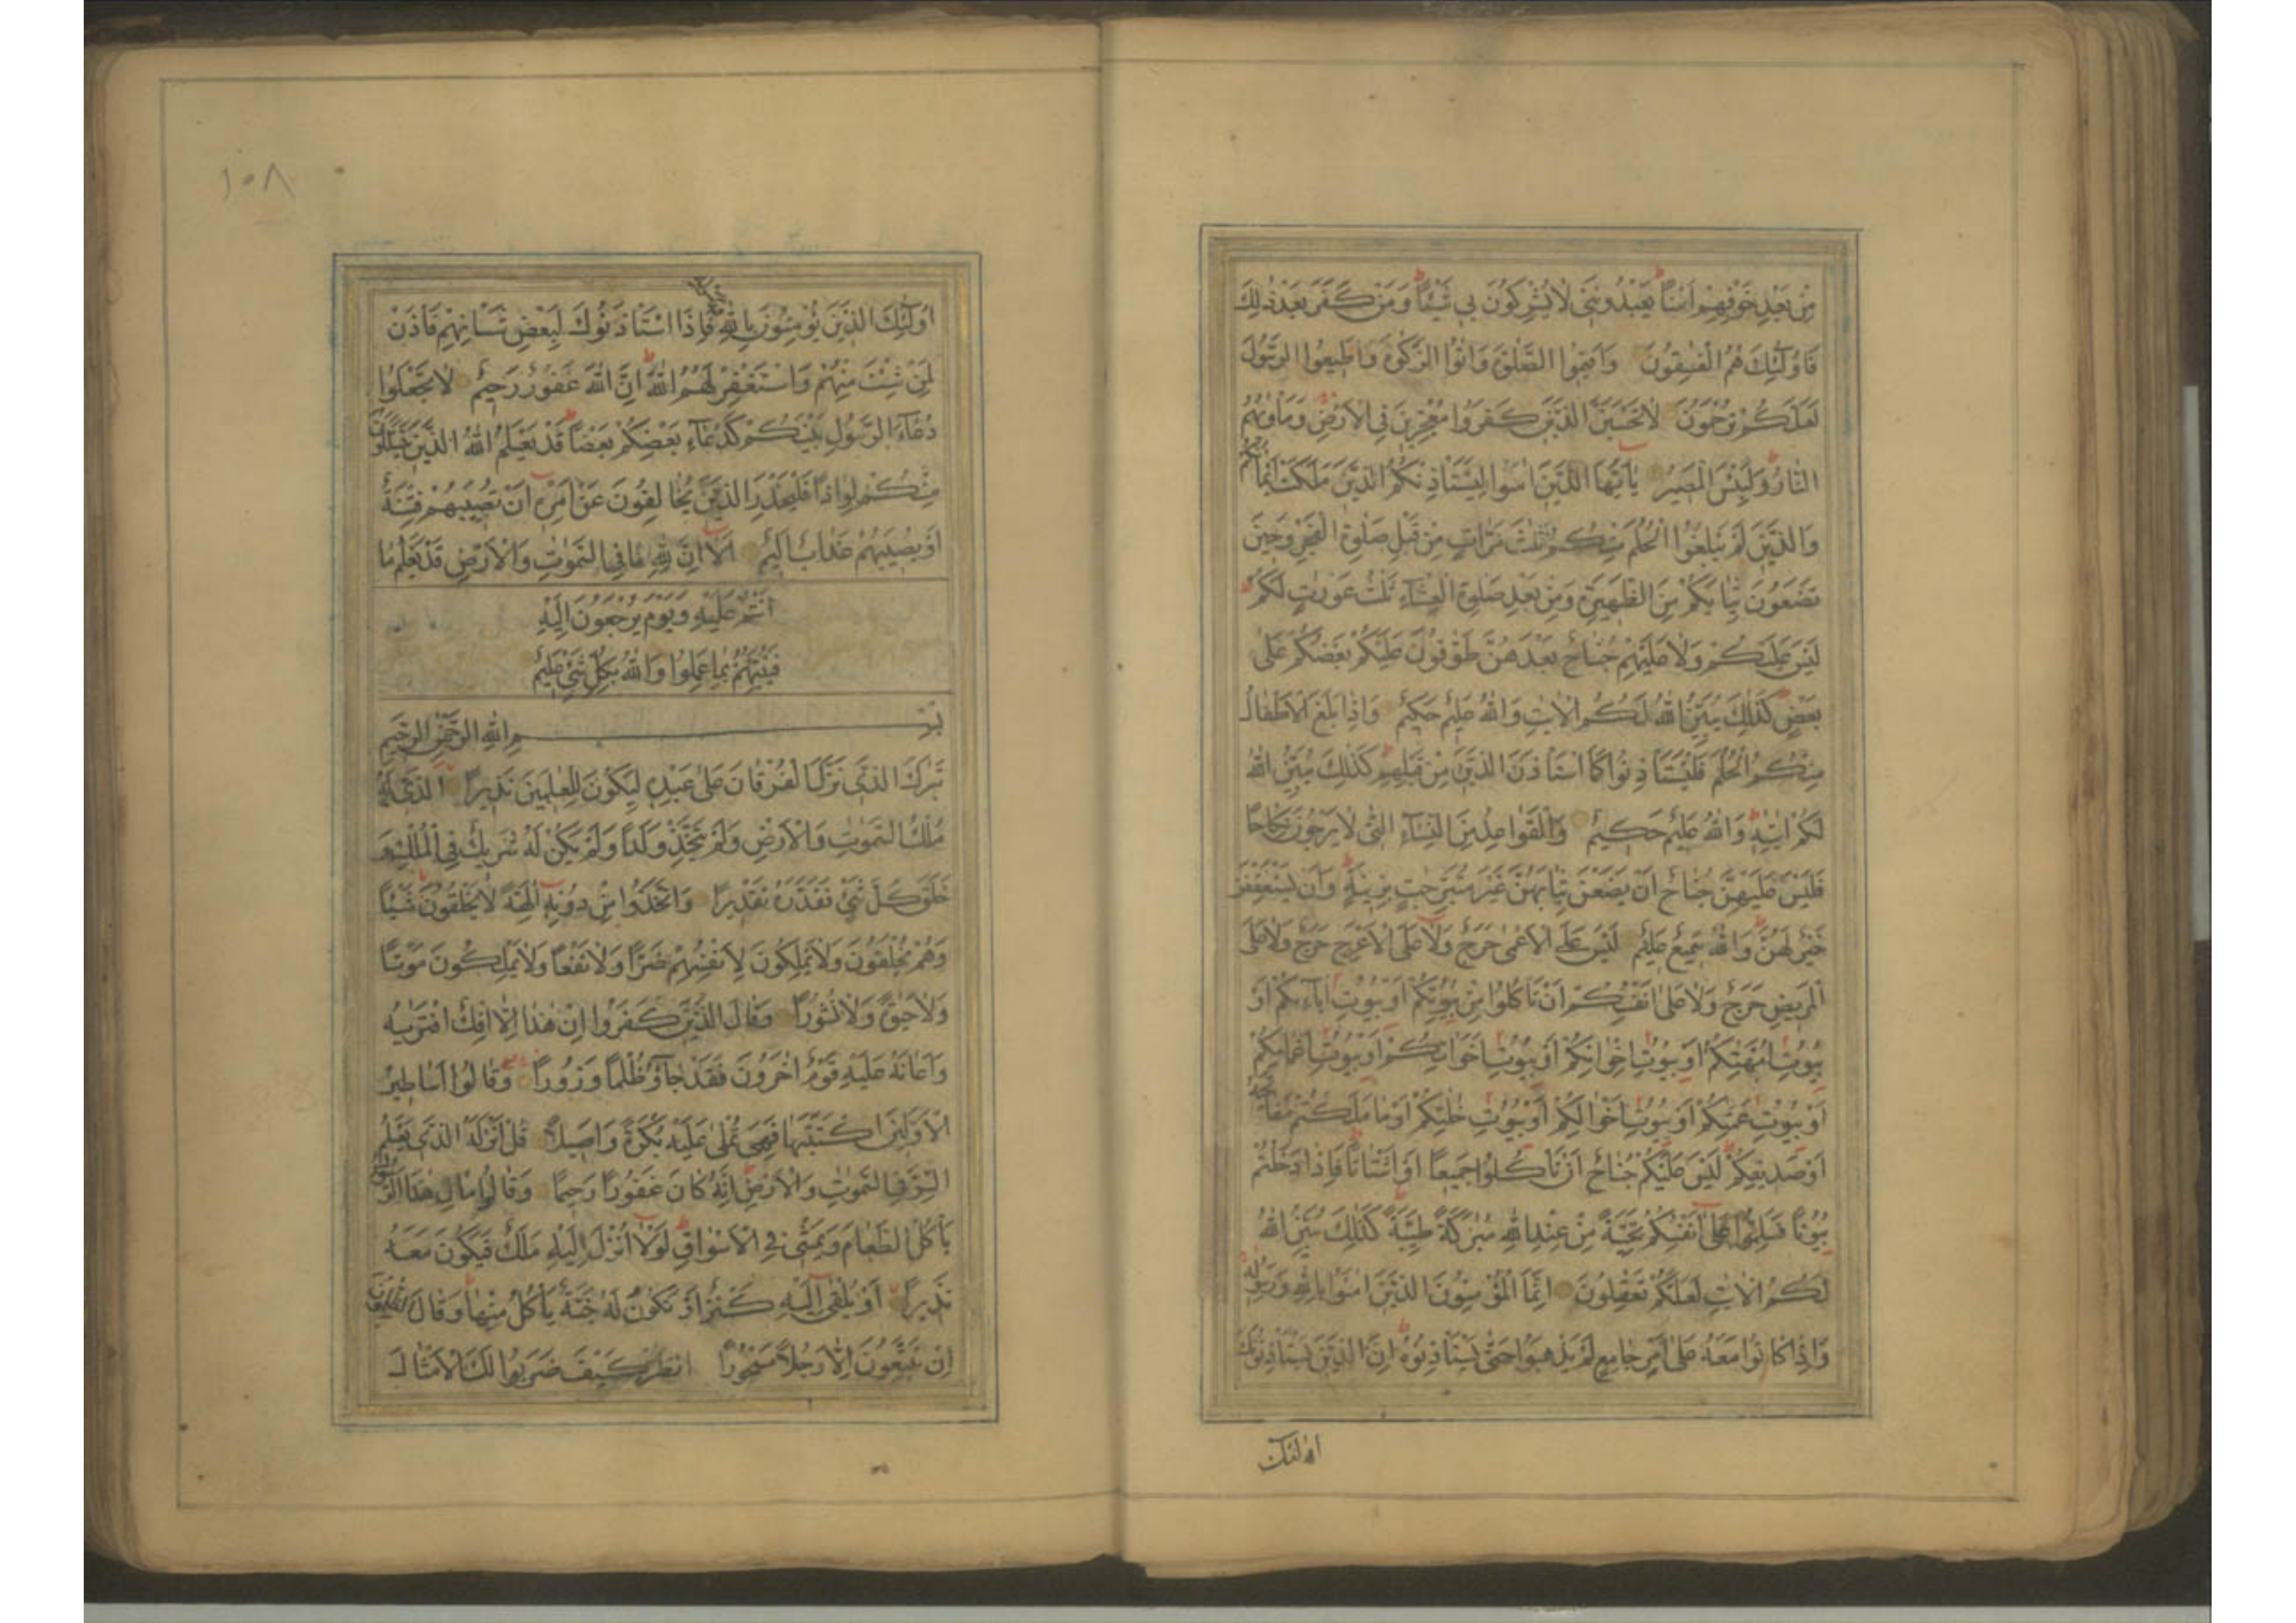 مِنْ بَعْدِ خَوْفِهِمْ اَمْنًا يَعْبُدُونَنِى لَا يُشْرِكُونَ بِى شَيْئًا وَمَنْ كَفَرَ بَعْدَ ذٰلِكَ
فَاُولٰئِكَ هُمُ الْفٰسِقُونَ وَاَقِيمُوا الصَّلٰوةَ وَاٰتُوا الزَّكٰوةَ وَاَطِيعُوا الرَّسُولَ
لَعَلَّكُمْ تُرْحَمُونَ لَا تَحْسَبَنَّ الَّذِينَ كَفَرُوا مُعْجِزِينَ فِى الْاَرْضِ وَمَاْوٰيهُمُ
النَّارُ وَلَبِئْسَ الْمَصِيرُ يٰاَيُّهَا الَّذِينَ اٰمَنُوا لِيَسْتَاْذِنْكُمُ الَّذِينَ مَلَكَتْ اَيْمَانُكُمْ
وَالَّذِينَ لَمْ يَبْلُغُوا الْحُلُمَ مِنْكُمْ ثَلٰثَ مَرَّاتٍ مِنْ قَبْلِ صَلٰوةِ الْفَجْرِ وَحِينَ
تَضَعُونَ ثِيَابَكُمْ مِنَ الظَّهِيرَةِ وَمِنْ بَعْدِ صَلٰوةِ الْعِشَاءِ ثَلٰثُ عَوْرٰتٍ لَكُمْ
لَيْسَ عَلَيْكُمْ وَلَا عَلَيْهِمْ جُنَاحٌ بَعْدَهُنَّ طَوّٰفُونَ عَلَيْكُمْ بَعْضُكُمْ عَلٰى
بَعْضٍ كَذٰلِكَ يُبَيِّنُ اللّٰهُ لَكُمُ الْاٰيٰتِ وَاللّٰهُ عَلِيمٌ حَكِيمٌ وَاِذَا بَلَغَ الْاَطْفَالُ
مِنْكُمُ الْحُلُمَ فَلْيَسْتَاْذِنُوا كَمَا اسْتَاْذَنَ الَّذِينَ مِنْ قَبْلِهِمْ كَذٰلِكَ يُبَيِّنُ اللّٰهُ
لَكُمْ اٰيٰتِهِ وَاللّٰهُ عَلِيمٌ حَكِيمٌ وَالْقَوَاعِدُ مِنَ النِّسَاءِ الّٰتِى لَا يَرْجُونَ نِكَاحًا
فَلَيْسَ عَلَيْهِنَّ جُنَاحٌ اَنْ يَضَعْنَ ثِيَابَهُنَّ غَيْرَ مُتَبَرِّجٰتٍ بِزِينَةٍ وَاَنْ يَسْتَعْفِفْنَ
خَيْرٌ لَهُنَّ وَاللّٰهُ سَمِيعٌ عَلِيمٌ لَيْسَ عَلَى الْاَعْمٰى حَرَجٌ وَلَا عَلَى الْاَعْرَجِ حَرَجٌ وَلَا عَلَى
الْمَرِيضِ حَرَجٌ وَلَا عَلٰى اَنْفُسِكُمْ اَنْ تَاْكُلُوا مِنْ بُيُوتِكُمْ اَوْ بُيُوتِ اٰبَاءِكُمْ اَوْ
بُيُوتِ اُمَّهٰتِكُمْ اَوْ بُيُوتِ اِخْوَانِكُمْ اَوْ بُيُوتِ اَخَوَاتِكُمْ اَوْ بُيُوتِ اَعْمَامِكُمْ
اَوْ بُيُوتِ عَمّٰتِكُمْ اَوْ بُيُوتِ اَخْوَالِكُمْ اَوْ بُيُوتِ خٰلٰتِكُمْ اَوْ مَا مَلَكْتُمْ مَفَاتِحَهُ
اَوْ صَدِيقِكُمْ لَيْسَ عَلَيْكُمْ جُنَاحٌ اَنْ تَاْكُلُوا جَمِيعًا اَوْ اَشْتَاتًا فَاِذَا دَخَلْتُمْ
بُيُوتًا فَسَلِّمُوا عَلٰى اَنْفُسِكُمْ تَحِيَّةً مِنْ عِنْدِ اللّٰهِ مُبٰرَكَةً طَيِّبَةً كَذٰلِكَ يُبَيِّنُ اللّٰهُ
لَكُمُ الْاٰيٰتِ لَعَلَّكُمْ تَعْقِلُونَ اِنَّمَا الْمُؤْمِنُونَ الَّذِينَ اٰمَنُوا بِاللّٰهِ وَرَسُولِهِ
وَاِذَا كَانُوا مَعَهُ عَلٰى اَمْرٍ جَامِعٍ لَمْ يَذْهَبُوا حَتّٰى يَسْتَاْذِنُوهُ اِنَّ الَّذِينَ يَسْتَاْذِنُونَكَ
اولئك
١٠٨
اُولٰئِكَ الَّذِينَ يُؤْمِنُونَ بِاللّٰهِ فَاِذَا اسْتَاْذَنُوكَ لِبَعْضِ شَاْنِهِمْ فَاْذَنْ
لِمَنْ شِئْتَ مِنْهُمْ وَاسْتَغْفِرْ لَهُمُ اللّٰهَ اِنَّ اللّٰهَ غَفُورٌ رَحِيمٌ لَا تَجْعَلُوا
دُعَاءَ الرَّسُولِ بَيْنَكُمْ كَدُعَاءِ بَعْضِكُمْ بَعْضًا قَدْ يَعْلَمُ اللّٰهُ الَّذِينَ يَتَسَلَّلُونَ
مِنْكُمْ لِوَاذًا فَلْيَحْذَرِ الَّذِينَ يُخَالِفُونَ عَنْ اَمْرِهِ اَنْ تُصِيبَهُمْ فِتْنَةٌ
اَوْ يُصِيبَهُمْ عَذَابٌ اَلِيمٌ اَلَا اِنَّ لِلّٰهِ مَا فِى السَّمٰوٰتِ وَالْاَرْضِ قَدْ يَعْلَمُ مَا
اَنْتُمْ عَلَيْهِ وَيَوْمَ يُرْجَعُونَ اِلَيْهِ
فَيُنَبِّئُهُمْ بِمَا عَمِلُوا وَاللّٰهُ بِكُلِّ شَىْءٍ عَلِيمٌ
بِسْمِ اللّٰهِ الرَّحْمٰنِ الرَّحِيمِ
تَبٰرَكَ الَّذِى نَزَّلَ الْفُرْقَانَ عَلٰى عَبْدِهِ لِيَكُونَ لِلْعٰلَمِينَ نَذِيرًا الَّذِى لَهُ
مُلْكُ السَّمٰوٰتِ وَالْاَرْضِ وَلَمْ يَتَّخِذْ وَلَدًا وَلَمْ يَكُنْ لَهُ شَرِيكٌ فِى الْمُلْكِ وَ
خَلَقَ كُلَّ شَىْءٍ فَقَدَّرَهُ تَقْدِيرًا وَاتَّخَذُوا مِنْ دُونِهِ اٰلِهَةً لَا يَخْلُقُونَ شَيْئًا
وَهُمْ يُخْلَقُونَ وَلَا يَمْلِكُونَ لِاَنْفُسِهِمْ ضَرًّا وَلَا نَفْعًا وَلَا يَمْلِكُونَ مَوْتًا
وَلَا حَيٰوةً وَلَا نُشُورًا وَقَالَ الَّذِينَ كَفَرُوا اِنْ هٰذَا اِلَّا اِفْكٌ افْتَرٰيهُ
وَاَعَانَهُ عَلَيْهِ قَوْمٌ اٰخَرُونَ فَقَدْ جَاؤُ ظُلْمًا وَزُورًا وَقَالُوا اَسَاطِيرُ
الْاَوَّلِينَ اكْتَتَبَهَا فَهِىَ تُمْلٰى عَلَيْهِ بُكْرَةً وَاَصِيلًا قُلْ اَنْزَلَهُ الَّذِى يَعْلَمُ
السِّرَّ فِى السَّمٰوٰتِ وَالْاَرْضِ اِنَّهُ كَانَ غَفُورًا رَحِيمًا وَقَالُوا مَالِ هٰذَا الرَّسُولِ
يَاْكُلُ الطَّعَامَ وَيَمْشِى فِى الْاَسْوَاقِ لَوْلَا اُنْزِلَ اِلَيْهِ مَلَكٌ فَيَكُونَ مَعَهُ
نَذِيرًا اَوْ يُلْقٰى اِلَيْهِ كَنْزٌ اَوْ تَكُونُ لَهُ جَنَّةٌ يَاْكُلُ مِنْهَا وَقَالَ الظّٰلِمُونَ
اِنْ تَتَّبِعُونَ اِلَّا رَجُلًا مَسْحُورًا انْظُرْ كَيْفَ ضَرَبُوا لَكَ الْاَمْثَالَ